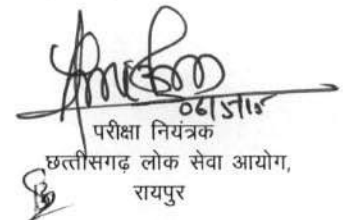 06/5/15
परीक्षा नियंत्रक
छत्तीसगढ़ लोक सेवा आयोग,
रायपुर